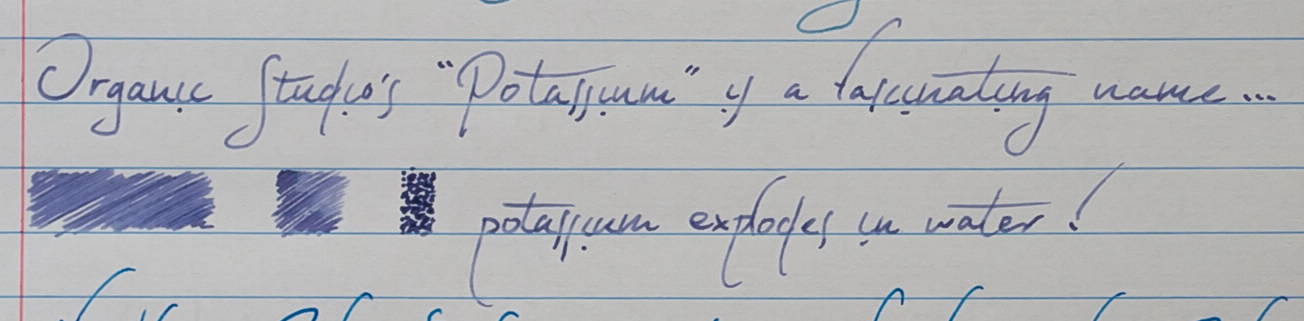 Organic Studio's "Potassium" is a fascinating name...
potassium explodes in water!